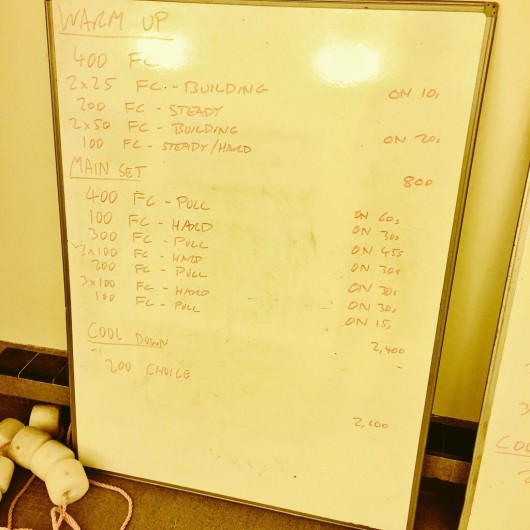 WARM UP
400 FC
2x25 FC - BUILDING ON 10s
200 FC - STEADY
2x50 FC - BUILDING ON 20s
100 FC - STEADY/HARD
800
MAIN SET
400 FC - PULL ON 60s
100 FC - HARD ON 30s
300 FC - PULL ON 45s
2x100 FC - HARD ON 30s
200 FC - PULL ON 30s
3x100 FC - HARD ON 30s
100 FC - PULL ON 15s
2,400
COOL DOWN
200 CHOICE
2,600
COOL